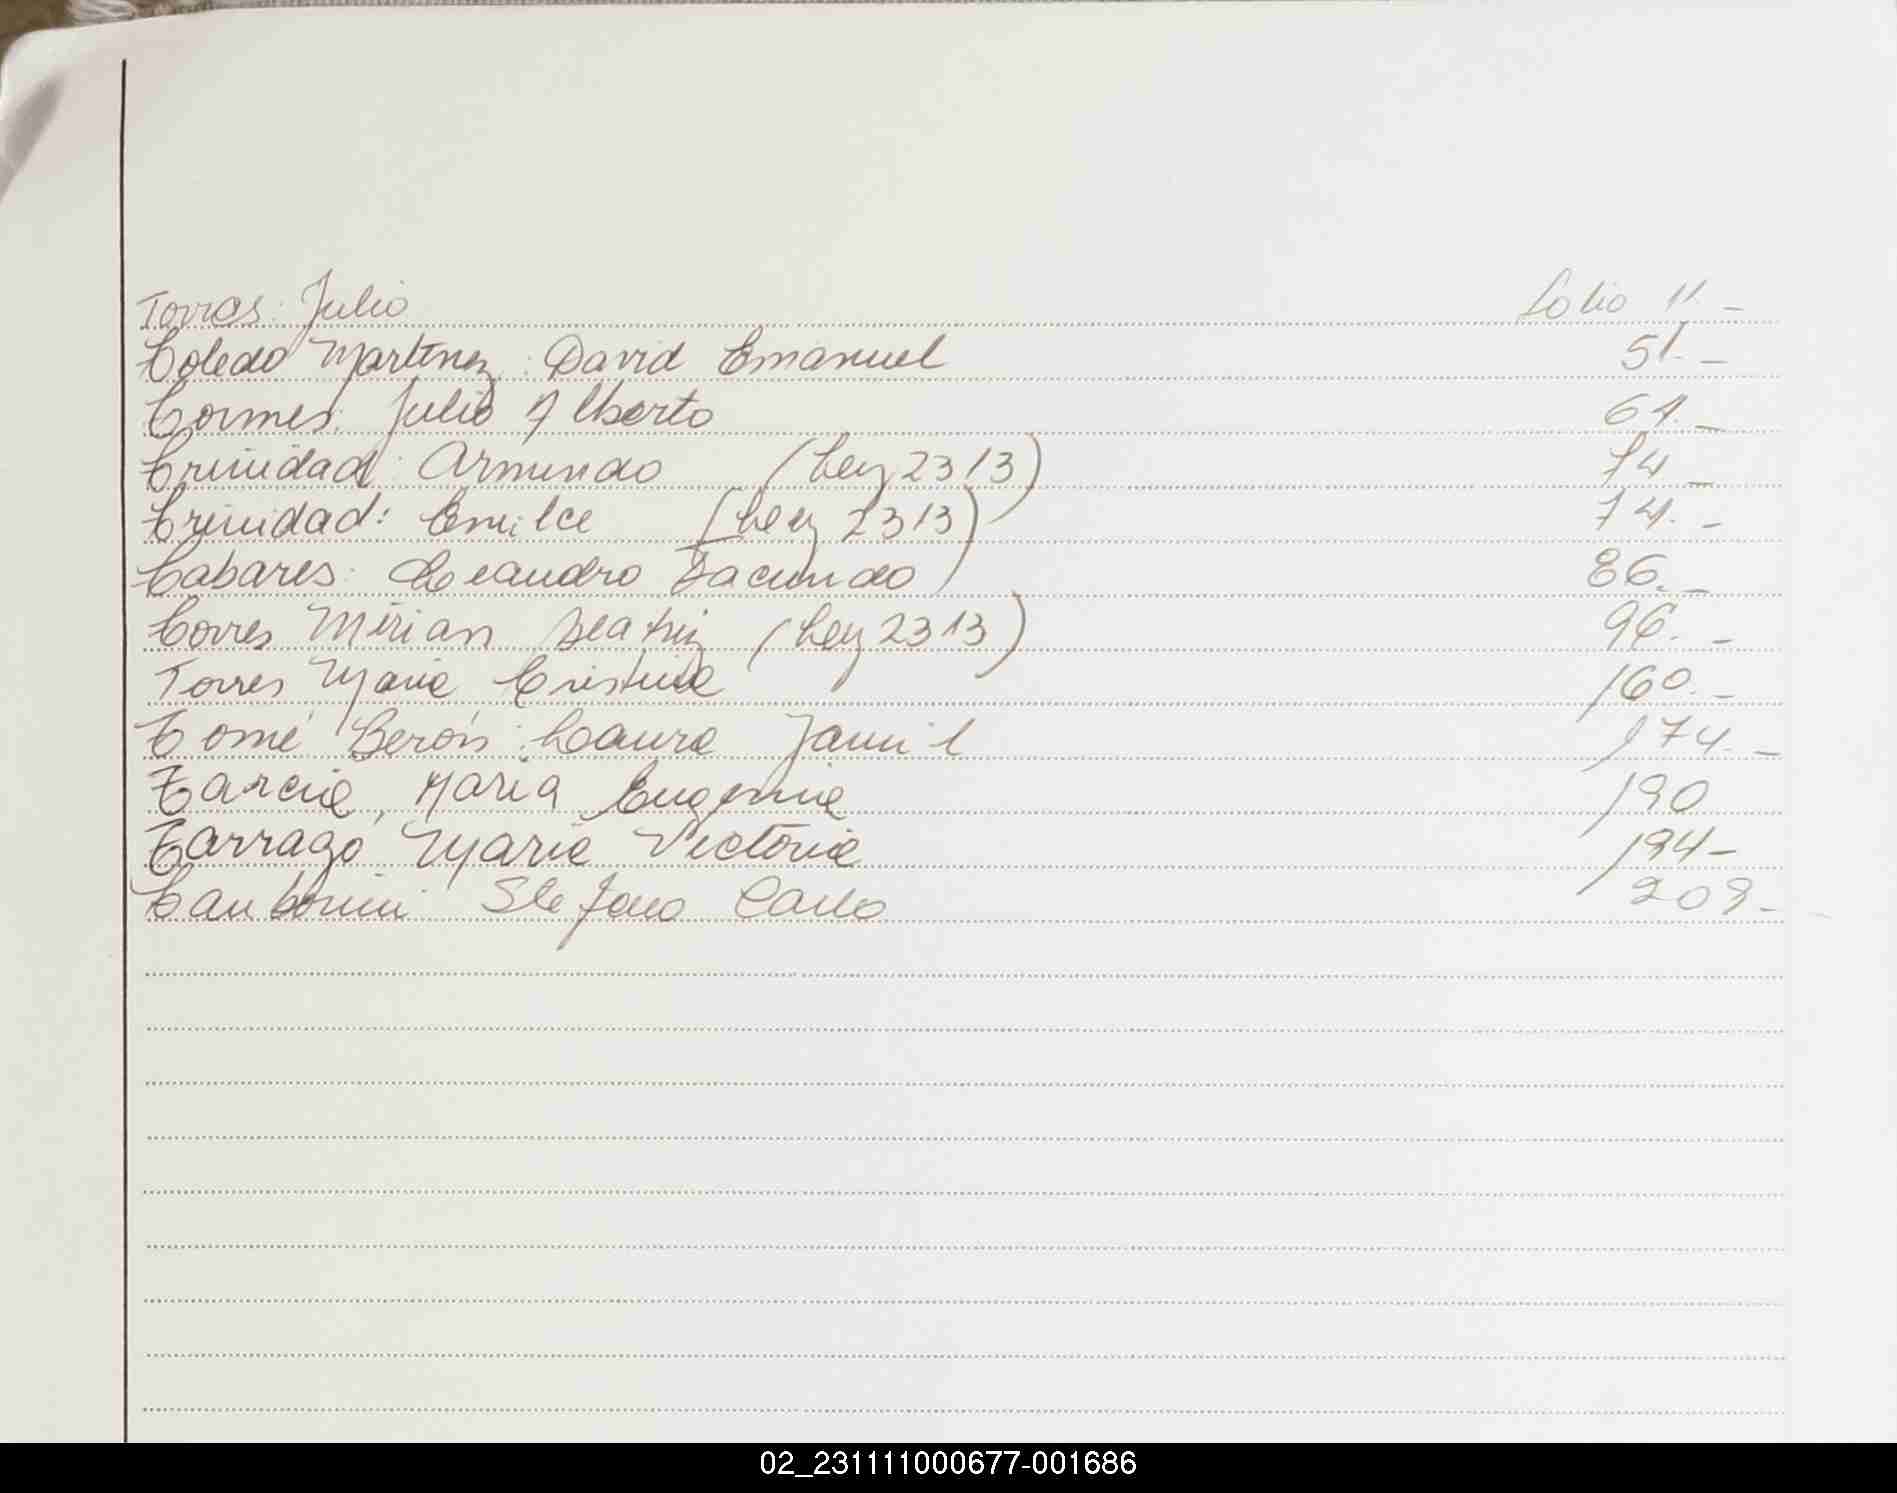 Torres: Julio folio 11.-
Toledo Martinez: David Emanuel 51.-
Tormes: Julio Alberto 61.-
Trinidad: Armindo (Ley 2313) 74-
Trinidad: Emilce (Ley 2313) 74.-
Tabares: Leandro Facundo 86.-
Torres Mirian Beatriz (Ley 2313) 96.-
Torres Maria Cristina 160.-
Tomé Berón: Laura Jamil 174.-
Tarcia, Maria Eugenia 190
Tarragó Maria Victoria 194-
Stefano Carlo 209-
02_231111000677-001686